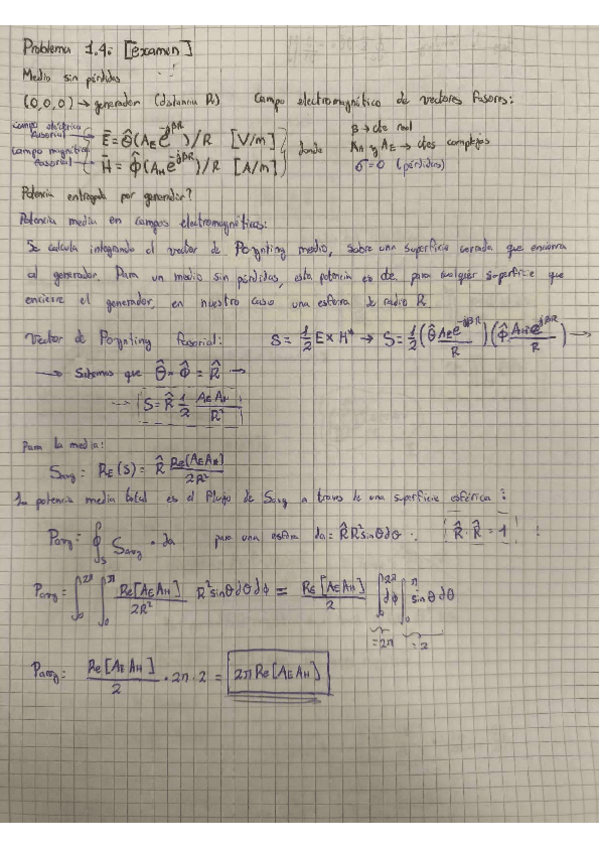 Problema 1.4: [examen]
Medio sin pérdidas
(0,0,0) → generador (distancia R) Campo electromagnético de vectores fasores:
campo eléctrico fasorial → Ē = θ̂(A_E e^-jβR)/R [V/m]
campo magnético fasorial → H̄ = Φ̂(A_H e^-jβR)/R [A/m]
donde
β → cte real
A_H y A_E → ctes complejas
σ=0 (pérdidas)
Potencia entregada por generador?
Potencia media en campos electromagnéticos:
Se calcula integrando el vector de Poynting medio, sobre una superficie cerrada que encierra
al generador. Para un medio sin pérdidas, esta potencia es cte. para cualquier superficie que
encierre el generador, en nuestro caso una esfera de radio R.
Vector de Poynting fasorial: S = 1/2 E x H* → S = 1/2 (θ̂ A_E e^-jβR / R) (Φ̂ A_H e^jβR / R) →
→ Sabemos que θ̂ · Φ̂ = R̂ →
→ S = R̂ 1/2 A_E A_H / R²
Para la media:
S_avg = R_E (S) = R̂ Re[A_E A_H] / 2R²
La potencia media total es el flujo de S_avg a traves de una superficie esférica:
P_avg = ∮_S S_avg · da para una esfera da = R̂ R² sinθ dθ ∴ R̂ · R̂ = 1
P_avg = ∫_0^2π ∫_0^π Re[A_E A_H] / 2R² R² sinθ dθ dϕ = Re[A_E A_H] / 2 ∫_0^2π dϕ ∫_0^π sinθ dθ
=2π =2
P_avg = Re[A_E A_H] / 2 · 2π · 2 = 2π Re[A_E A_H]